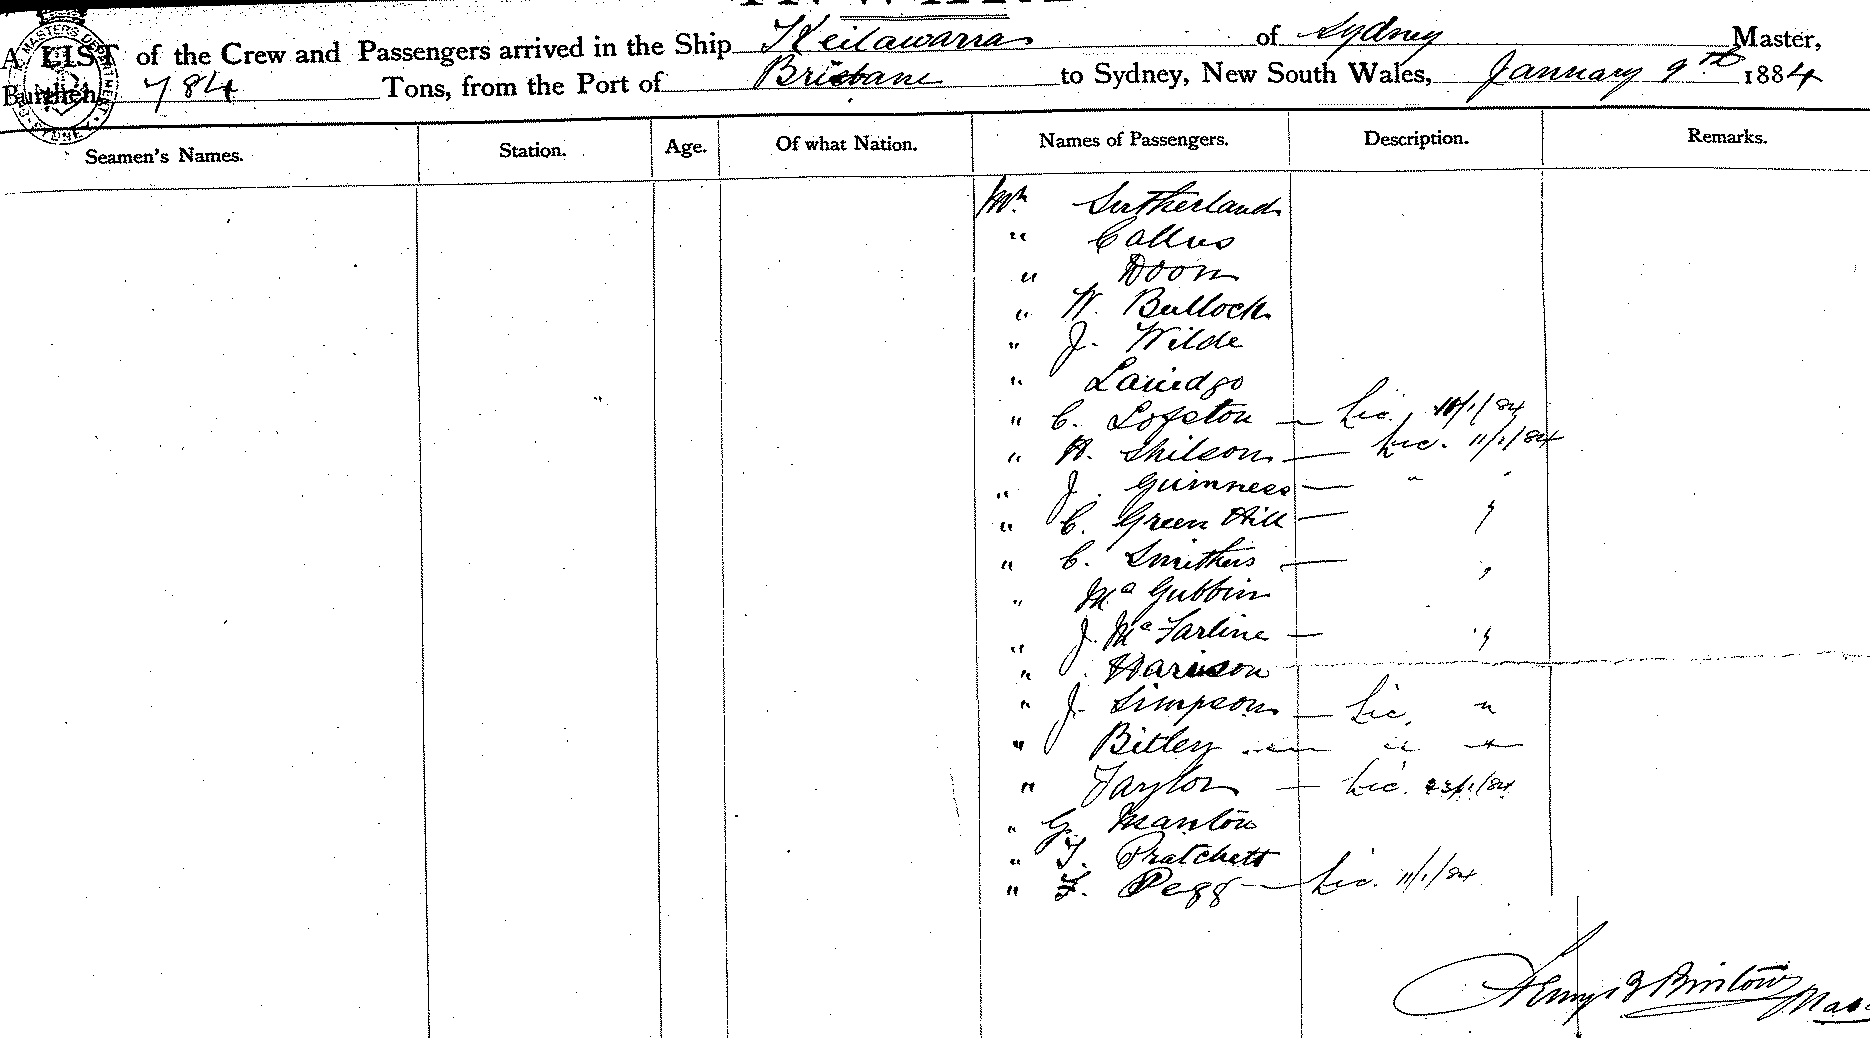 A LIST of the Crew and Passengers arrived in the Ship Keilawarra of Sydney Master,
Burthen, 784 Tons, from the Port of Brisbane to Sydney, New South Wales, January 9th 1884
Seamen's Names. Station. Age. Of what Nation. Names of Passengers. Description. Remarks.
Mr. Sutherland
" Callus
" Doon
" W. Bullock
" J. Wilde
"
" C. Lofston — Lic. 11/1/84
" H. Shilson — Lic. 11/1/84
" J. Guinness — " "
" C. Green Hill — "
" C. Smithers — "
" Mc Gubbin
" J. Mc Farline — "
" Harrison
" J. Simpson — Lic. "
" Bitley — " "
" Taylor — Lic. 23/1/84
" G. Manton
" T. Pratchett
" F. Pegg — Lic. 11/1/84
Henry